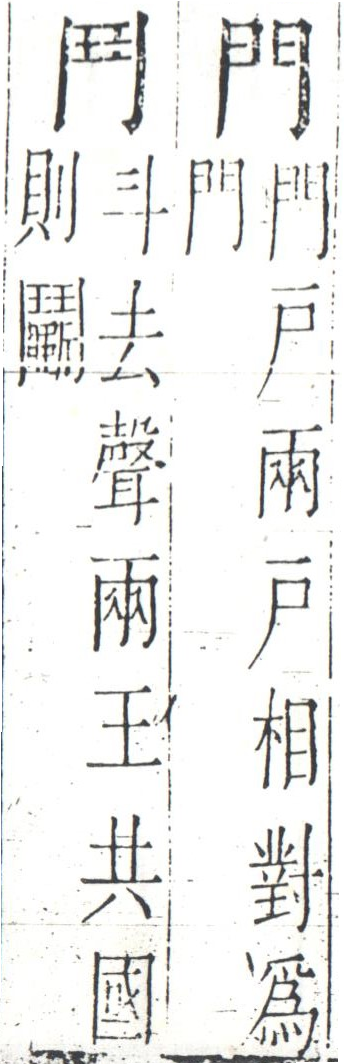 門
門戸兩戸相對爲
門
鬥
斗去聲兩王共國
則鬬